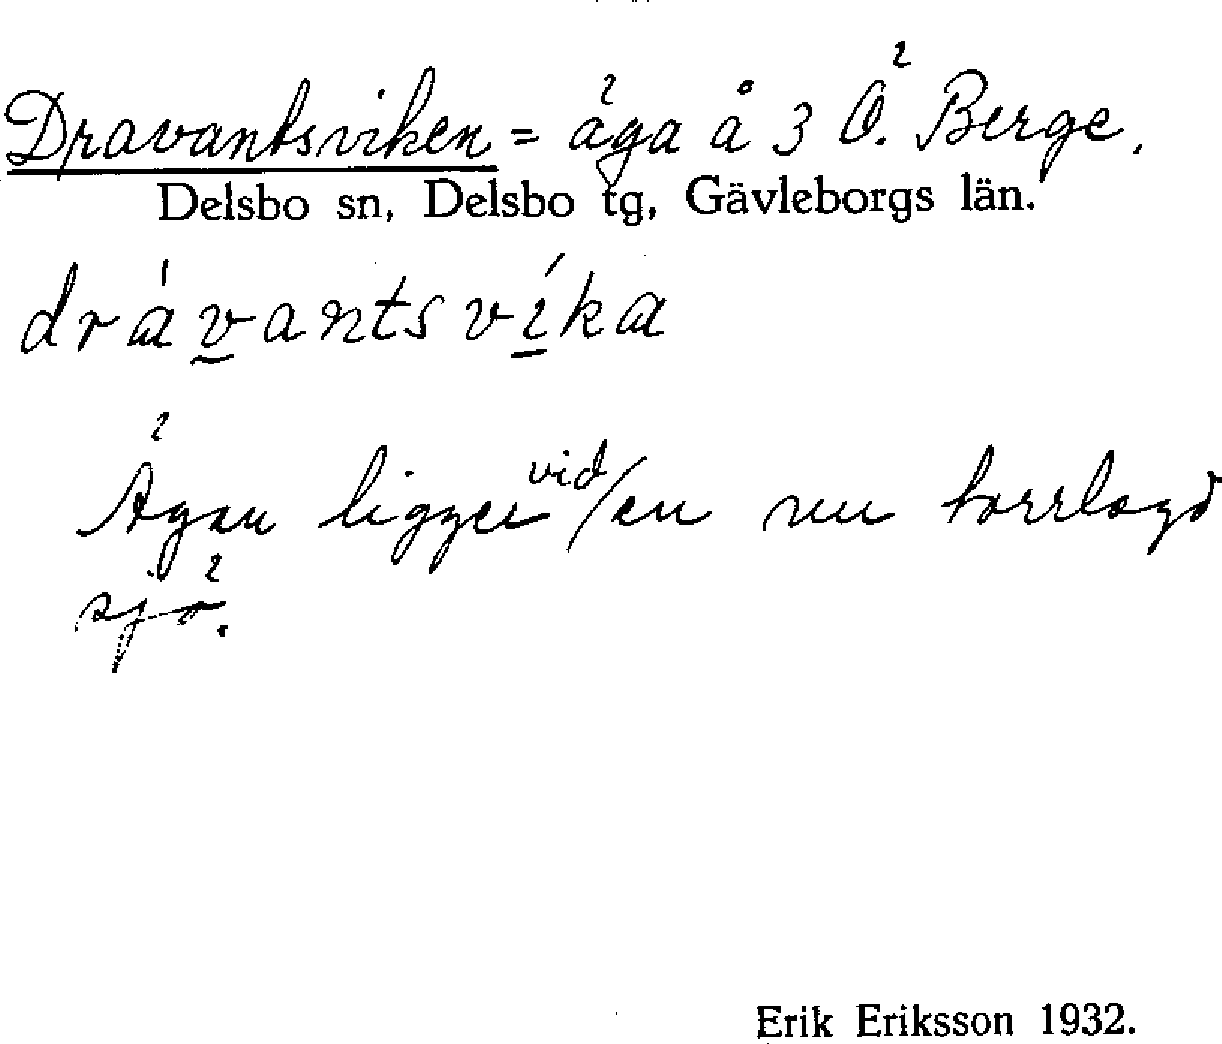 Dravantsviken = äga å 3 Ö. Berge.
Delsbo sn, Delsbo tg, Gävleborgs län.
drávantsvíka
Ägan ligger vid/en nu torrlagd
sjö.
Erik Eriksson 1932.